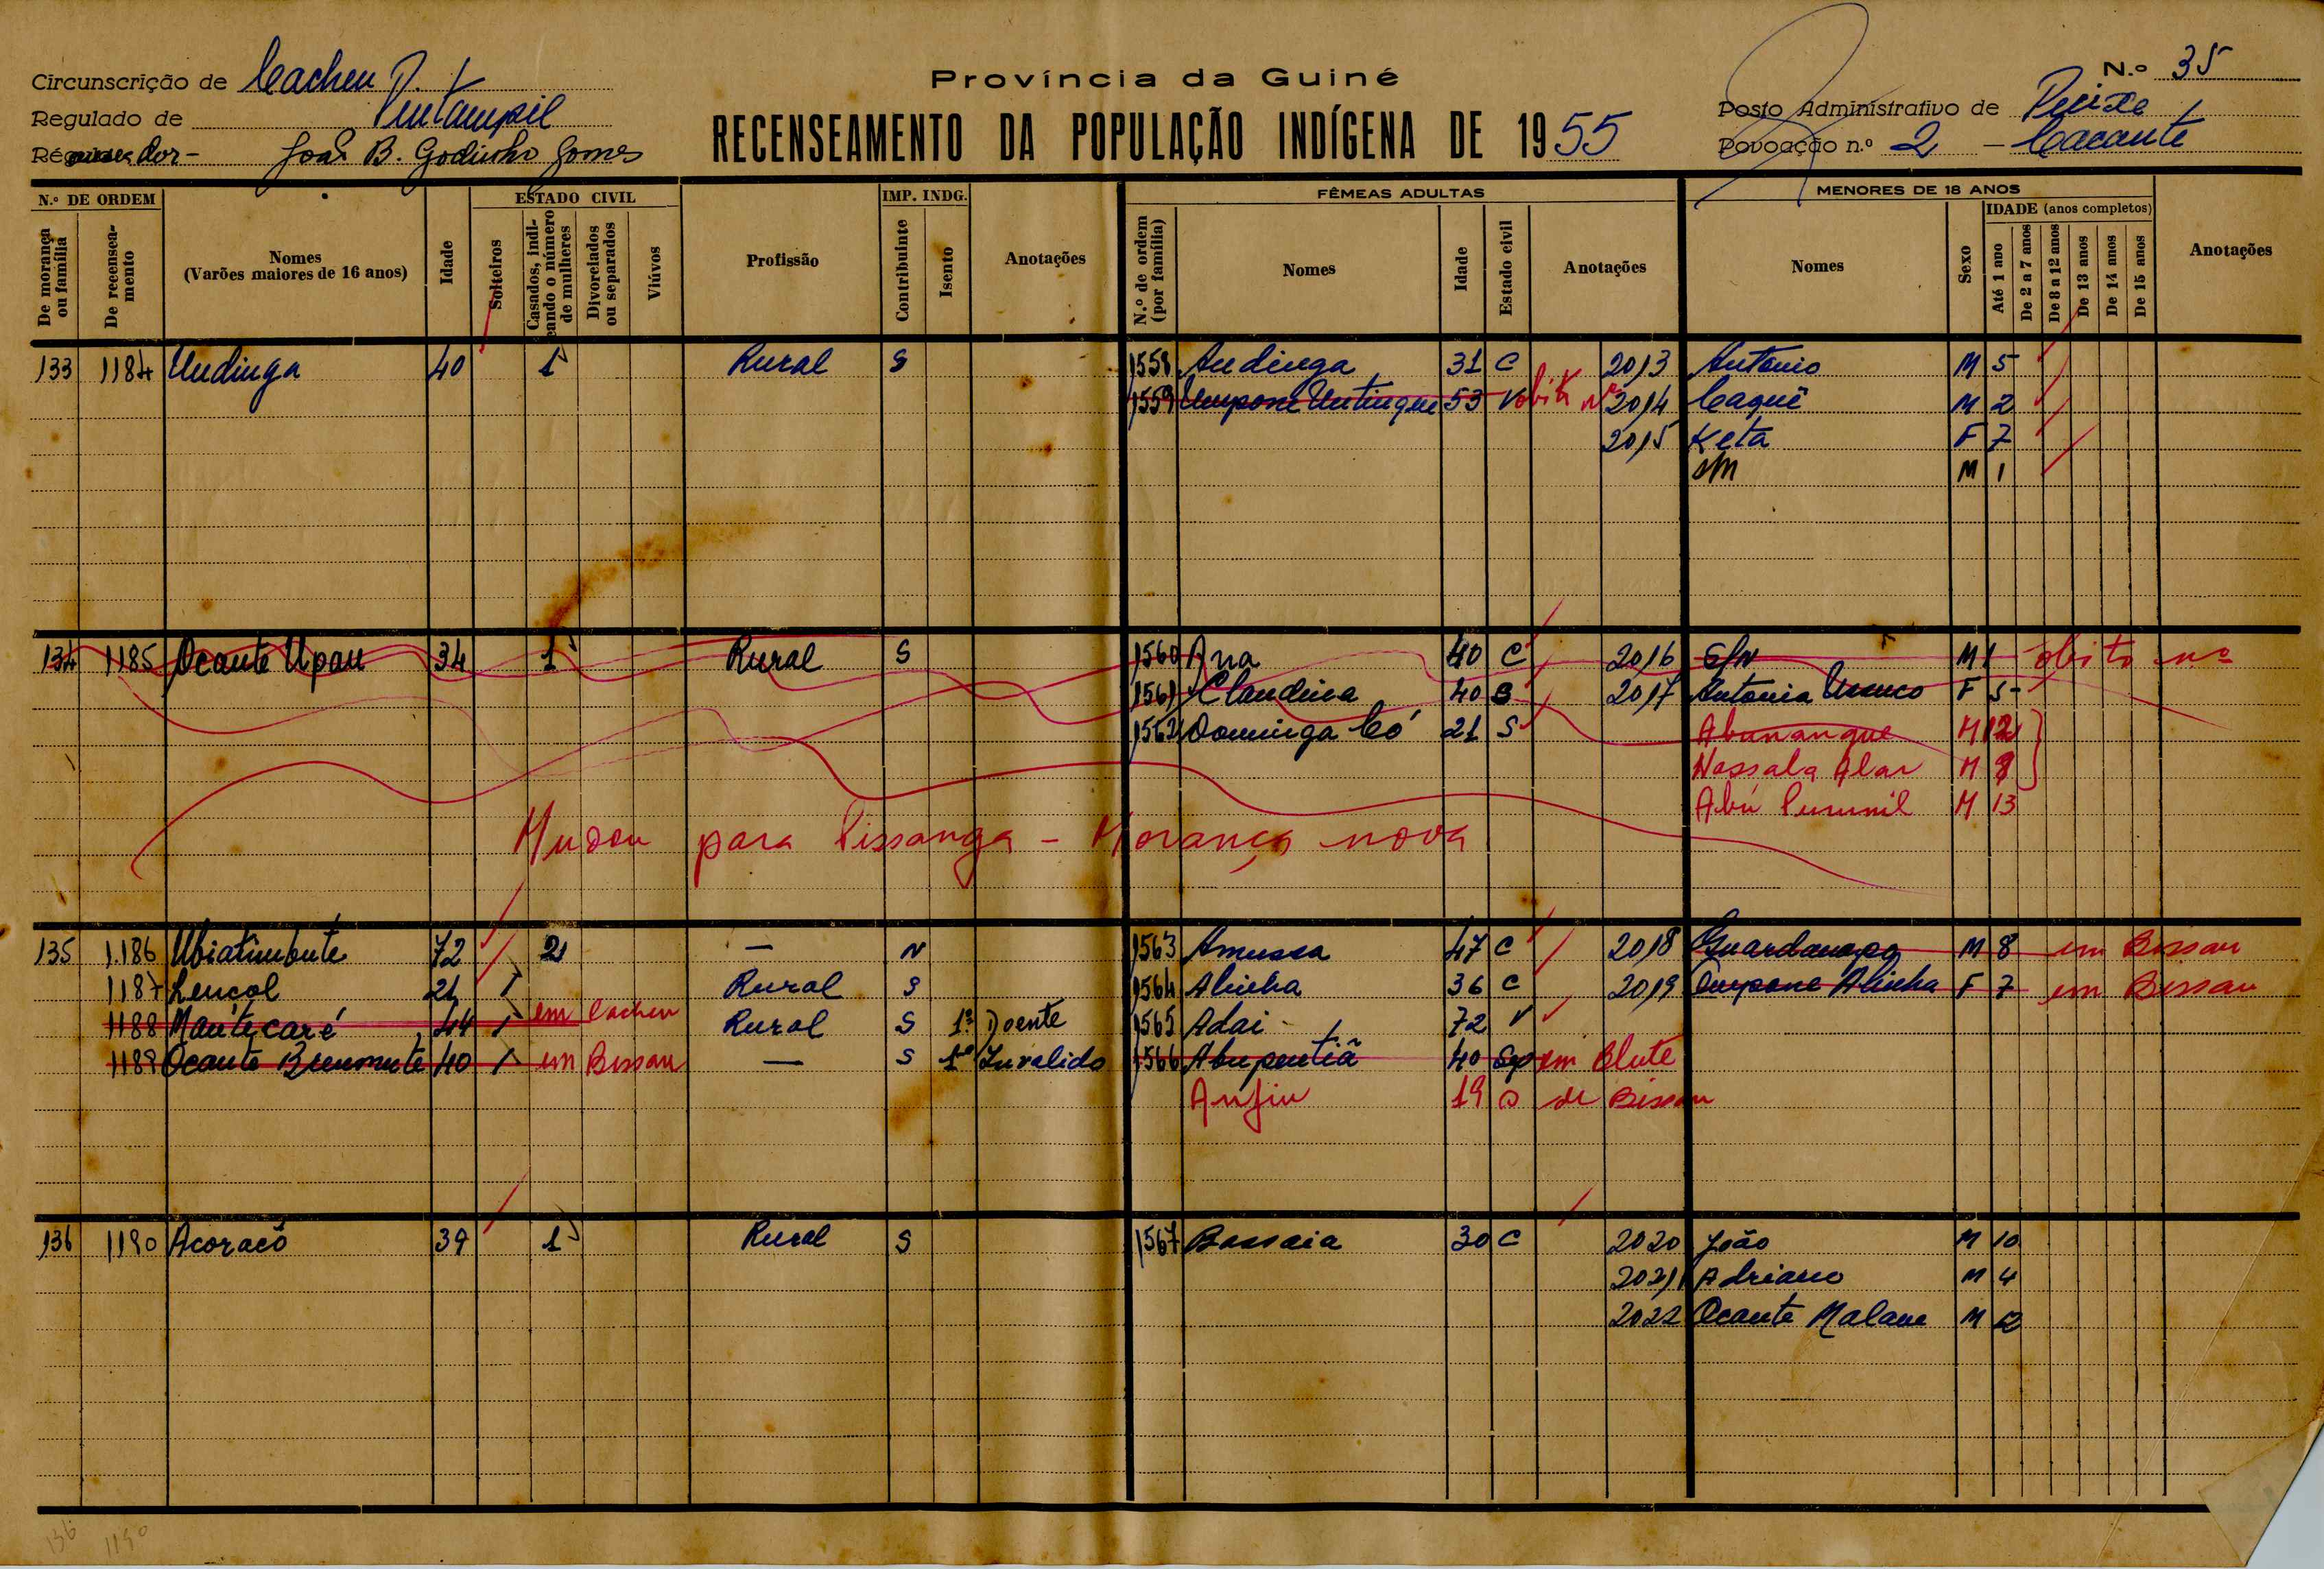 Província da Guiné
N.º 35
Circunscrição de Cacheu
Regulado de Pentampil
João B. Godinho Gomes
RECENSEAMENTO DA POPULAÇÃO INDÍGENA DE 1955
Posto Administrativo de
Povoação n.º 2 – Cacante
N.º DE ORDEM
De morança ou família
De recenseamento
Nomes
(Varões maiores de 16 anos)
Idade
ESTADO CIVIL
Solteiros
Casados, indicando o número de mulheres
Divorciados ou separados
Viúvos
Profissão
IMP. INDG.
Contribuinte
Isento
Anotações
FÊMEAS ADULTAS
N.º de ordem (por família)
Nomes
Idade
Estado civil
Anotações
MENORES DE 18 ANOS
Nomes
Sexo
IDADE (anos completos)
Até 1 ano
De 2 a 7 anos
De 8 a 12 anos
De 13 anos
De 14 anos
De 15 anos
Anotações
133 1184 Undinga 40 1 Rural S 1558 Andinga 31 C 2013 Antonio M 5
1559 Umpone Untinque 53 V obito nº 2014 Caquê M 2
2015 Keta F 7
S/N M 1
134 1185 Ocante Upau 34 1 Rural S 1560 Ana 40 C 2016 S/N M 1 obito nº
1561 Claudina 40 2017 Antonia F 5
1562 Dominga Có 21 S Abunanque M 12
Nassala Alar M 8
Abú M 13
Mudou para Pissanga – Morança nova
135 1.186 Ubiatimbute 72 2 — N 1563 Amussa 47 C 2018 Guardanapo M 8 em Bissau
1187 Lençol 21 1 Rural S 1564 Alinha 36 C 2019 Umpone Alinha F 7 em Bissau
1188 Mantecaré 44 1 em Cacheu Rural S 1º Doente 1565 Adai 72 V
1189 Ocante 40 1 em Bissau — S 1º Invalido 1566 Abupentiã 40 Sep em Blute
Anfiu 19 S de Bissau
136 1190 Acoracô 39 1 Rural S 1567 Bassaia 30 C 2020 João M 10
2021 Adriano M 4
2022 Ocante Malane M 2
136 1190